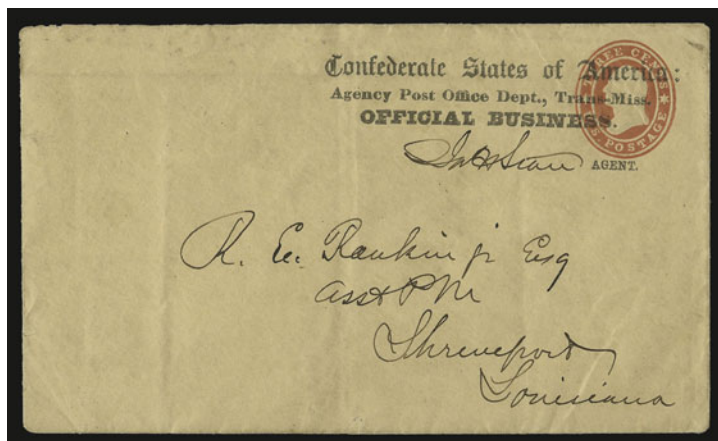 Confederate States of America:
Agency Post Office Dept., Trans-Miss.
OFFICIAL BUSINESS.
THREE CENTS
U.S. POSTAGE
AGENT.
R. E. Rankin jr Esq
Asst P M
Shreveport
Louisiana